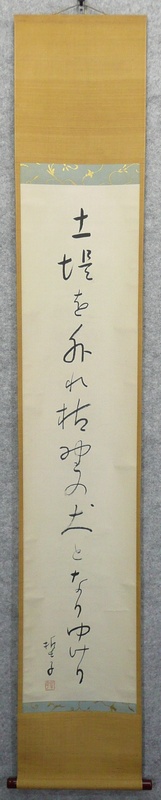 土堤を外れ枯野の犬となりゆけり